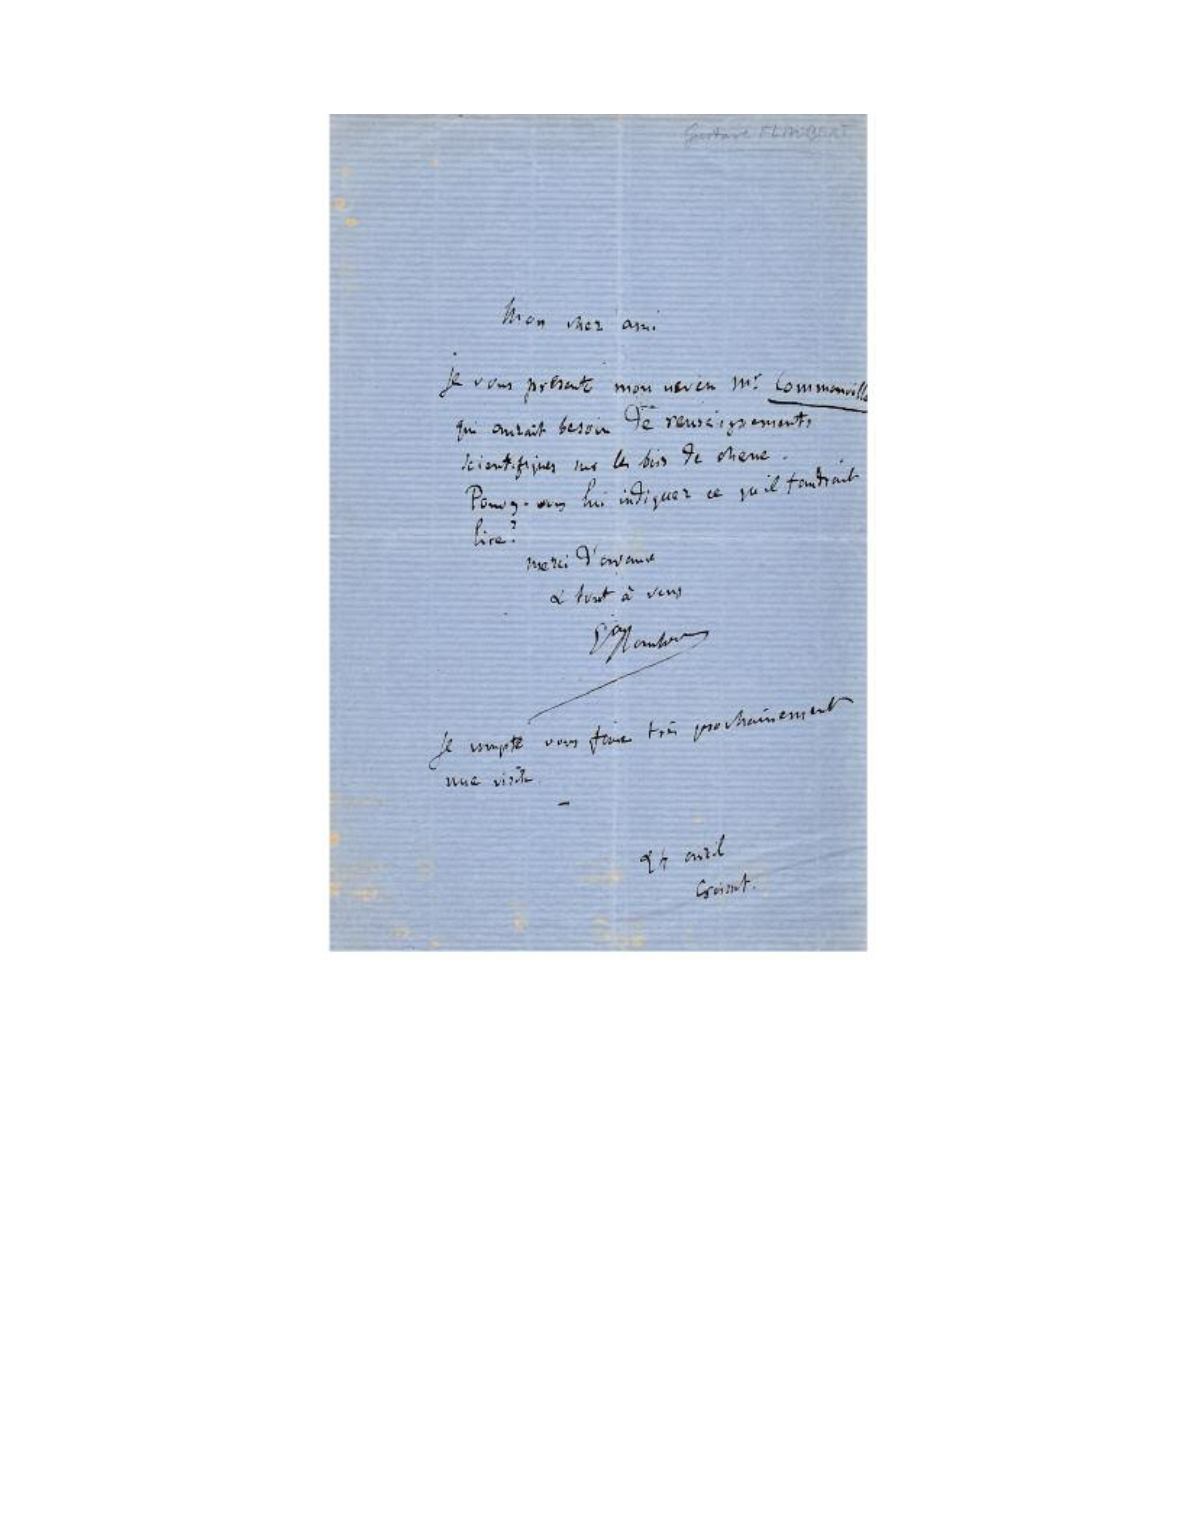 Gustave FLAUBERT
Mon cher ami
je vous présente mon neveu Mr Commanville
qui aurait besoin de renseignements
scientifiques sur les bois de chene.
Pouvez-vous lui indiquer ce qu'il faudrait
lire?
merci d'avance
& tout à vous
Gve Flaubert
Je compte vous faire très prochainement
une visite.
24 avril
Croisset.